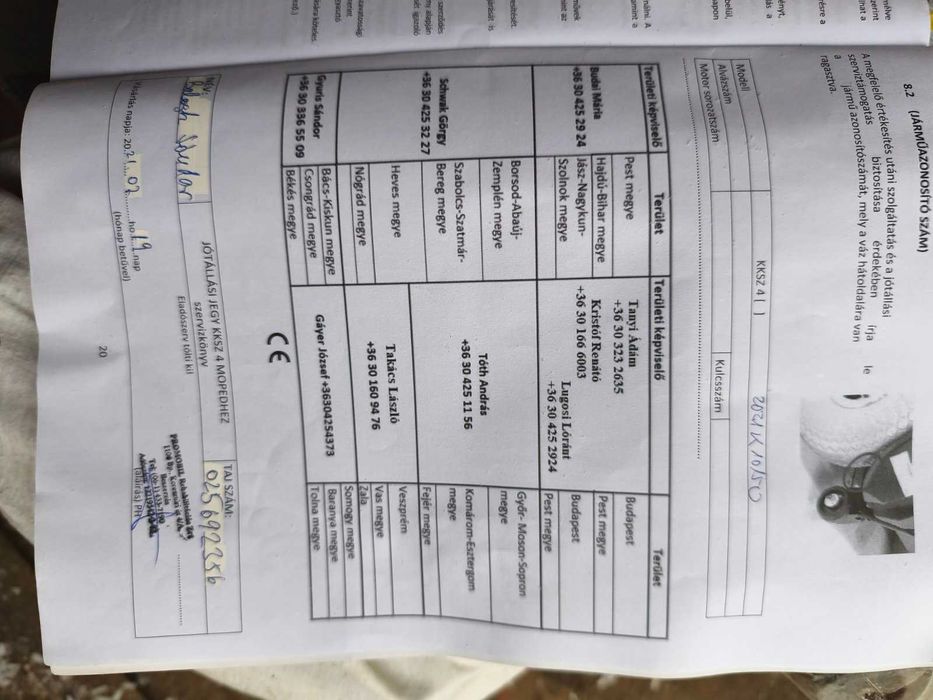 8.2 (JÁRMŰAZONOSÍTÓ SZÁM)
A megfelelő értékesítés utáni szolgáltatás és a jótállási
szerviztámogatás biztosítása érdekében írja le
a jármű azonosítószámát, mely a váz hátoldalára van
ragasztva.
Modell KKSZ 4 [ ] 2021 K/10/50
Alvázszám Kulcsszám
Motor sorozatszám
Területi képviselő Terület Területi képviselő Terület
Budai Mária
+36 30 425 29 24
Pest megye
Hajdú-Bihar megye
Jász-Nagykun-
Szolnok megye
Tanyi Ádám
+36 30 323 2635
Budapest
Pest megye
Kristóf Renátó
+36 30 166 6003
Budapest
Lugosi Lóránt
+36 30 425 2924
Pest megye
Schwak Görgy
+36 30 425 32 27
Borsod-Abaúj-
Zemplén megye
Szabolcs-Szatmár-
Bereg megye
Heves megye
Nógrád megye
Tóth András
+36 30 425 11 56
Győr- Moson-Sopron
megye
Komárom-Esztergom
megye
Fejér megye
Takács László
+36 30 160 94 76
Veszprém
Vas megye
Zala
Gyuris Sándor
+36 30 336 55 09
Bács-Kiskun megye
Csongrád megye
Békés megye
Gáyer József +36304254373
Somogy megye
Baranya megye
Tolna megye
CE
JÓTÁLLÁSI JEGY KKSZ 4 MOPEDHEZ
szervizkönyv
Eladószerv tölti ki!
Név:
TAJ SZÁM:
025692256
Vásárlás napja: 2021. 02 hó 19. nap
(hónap betűvel)
PROMOBIL Rehabilitációs
(aláírás) PH.
20